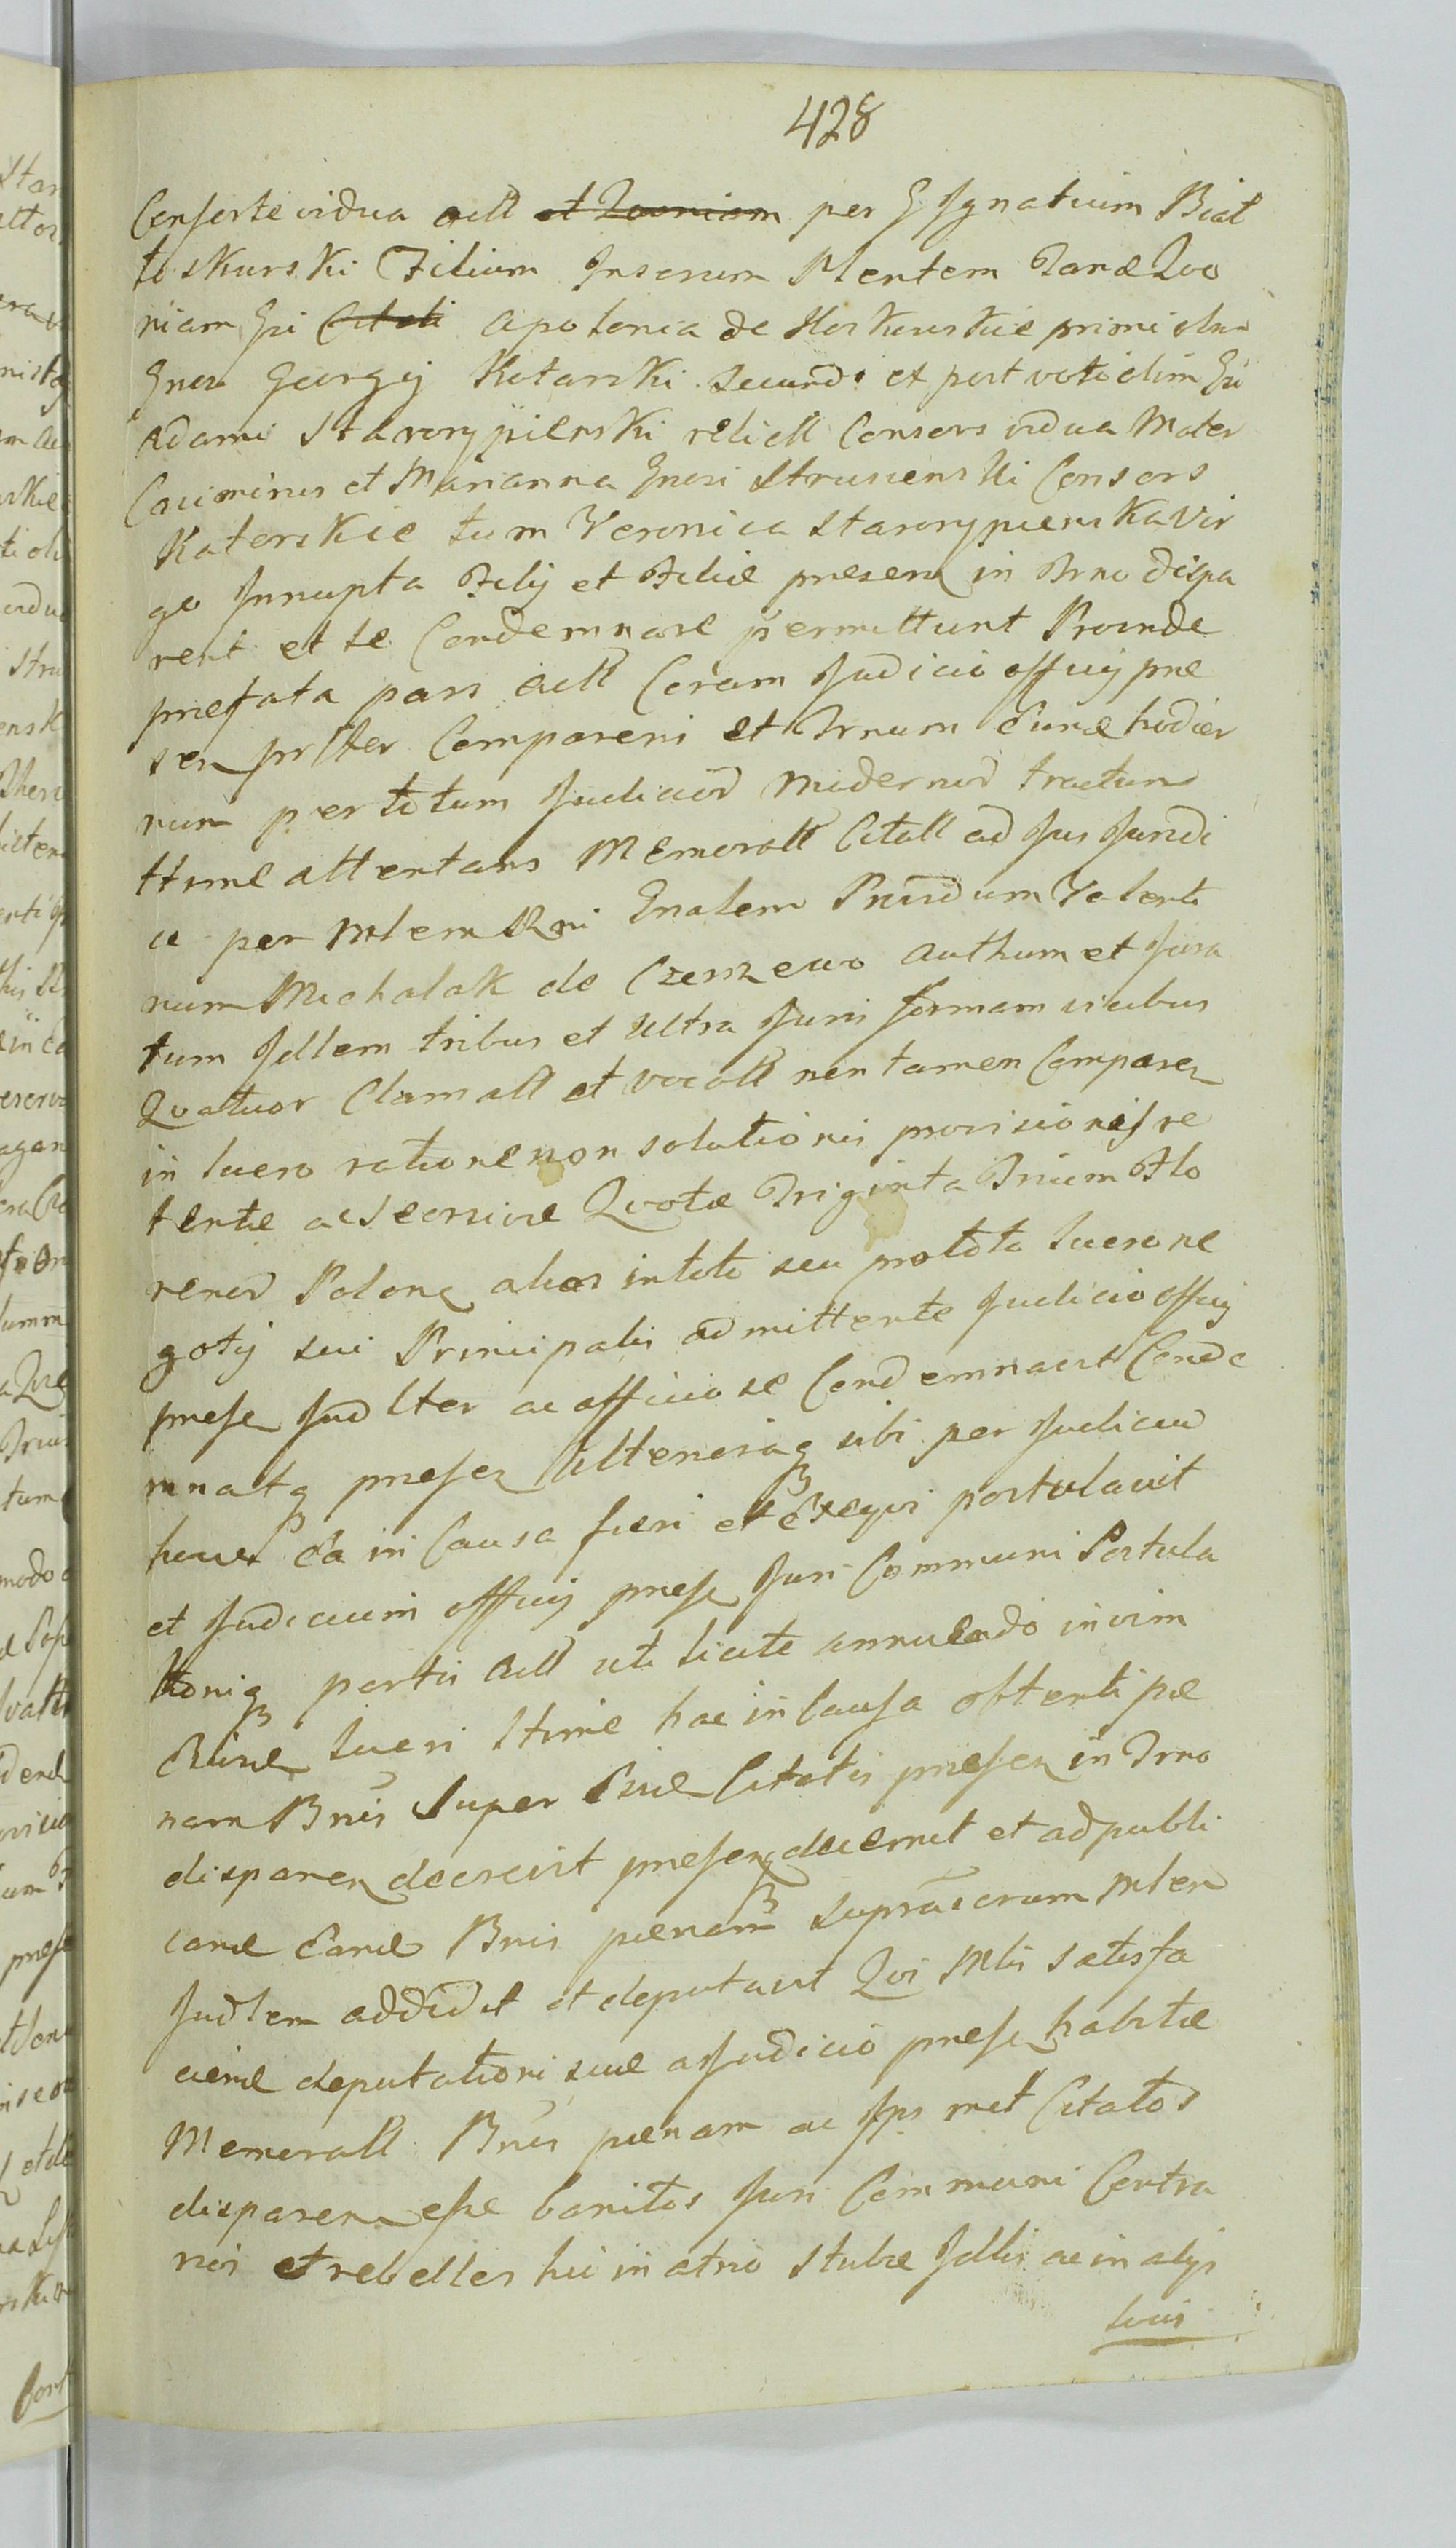 428
Consorte vidua act̃ et Quoniam per G Ignatium Biał
łoskurski Filium Insarum Mentem Danæ Quo
niam Gñi Citati Apolonia de Hoskurskie primi olim
Gnesi Georgij Kotarski Secundi et post voti olim Gñi
Adami Starorypienski relict̃ Consors vidua Mater
Casimirus et Marianna Gnosi Strusienski Consors
Kotarskie tum Veronica Starorypienska Vir
go Innupta Filij et Filiæ presen in Trno dispa
rent et se Condemnare permittunt Proinde
prefata pars act̃ Coram Judicio officij præ
sen prlter Comparens et Trnum Eunde hodier
num per totum Judicior̃ modernor̃ tractum
ttime attentans Memorat̃ Citat̃ ad Jus Jurdi
ce per Mlem Rni Gnalem Prvidum Valenti
num Michalak de Czerzewo authum et Jura
tum Jcllem tribus et ultra Juris formam vicibus
Quatuor Clamat̃ et vocat̃ non tamen Comparen
in lucro ratione non solutionis provisionis re
tentæ ac Seorsivæ Quotæ Triginta Trium Flo
renor̃ Polonq alias in toto seu pro toto lucro ne
gotij sui Principalis admittente Judicio officij
prese Judlter ac officiose Condemnavit Conde
mnatq presen ulteriorq sibi per Judicium
hocce Ea in Causa fieri et Exequi postulavit
et Judicium officij prese Juri Communi Postula
tioniq partis act̃ uti licite annuendo in vim
Evine lucri ttime hac in causa obtenti pœ
nam Bnis Super Eisde Citatis presen in Trno
disparen decrevit presenq decernit et ad publi
cand Eand Bnis pœnam supratcrum Mlem
Judlem addidit et deputavit Qui Mlis satisfa
ciend deputationi suæ a Judicio prese habitæ
Memorat̃ Bnis pœnam ac Ips met Citatos
disparen esse banitos Juri Communi Contra
rios et rebelles hic in atrio Stubæ Jcllis ac in alijs
locis